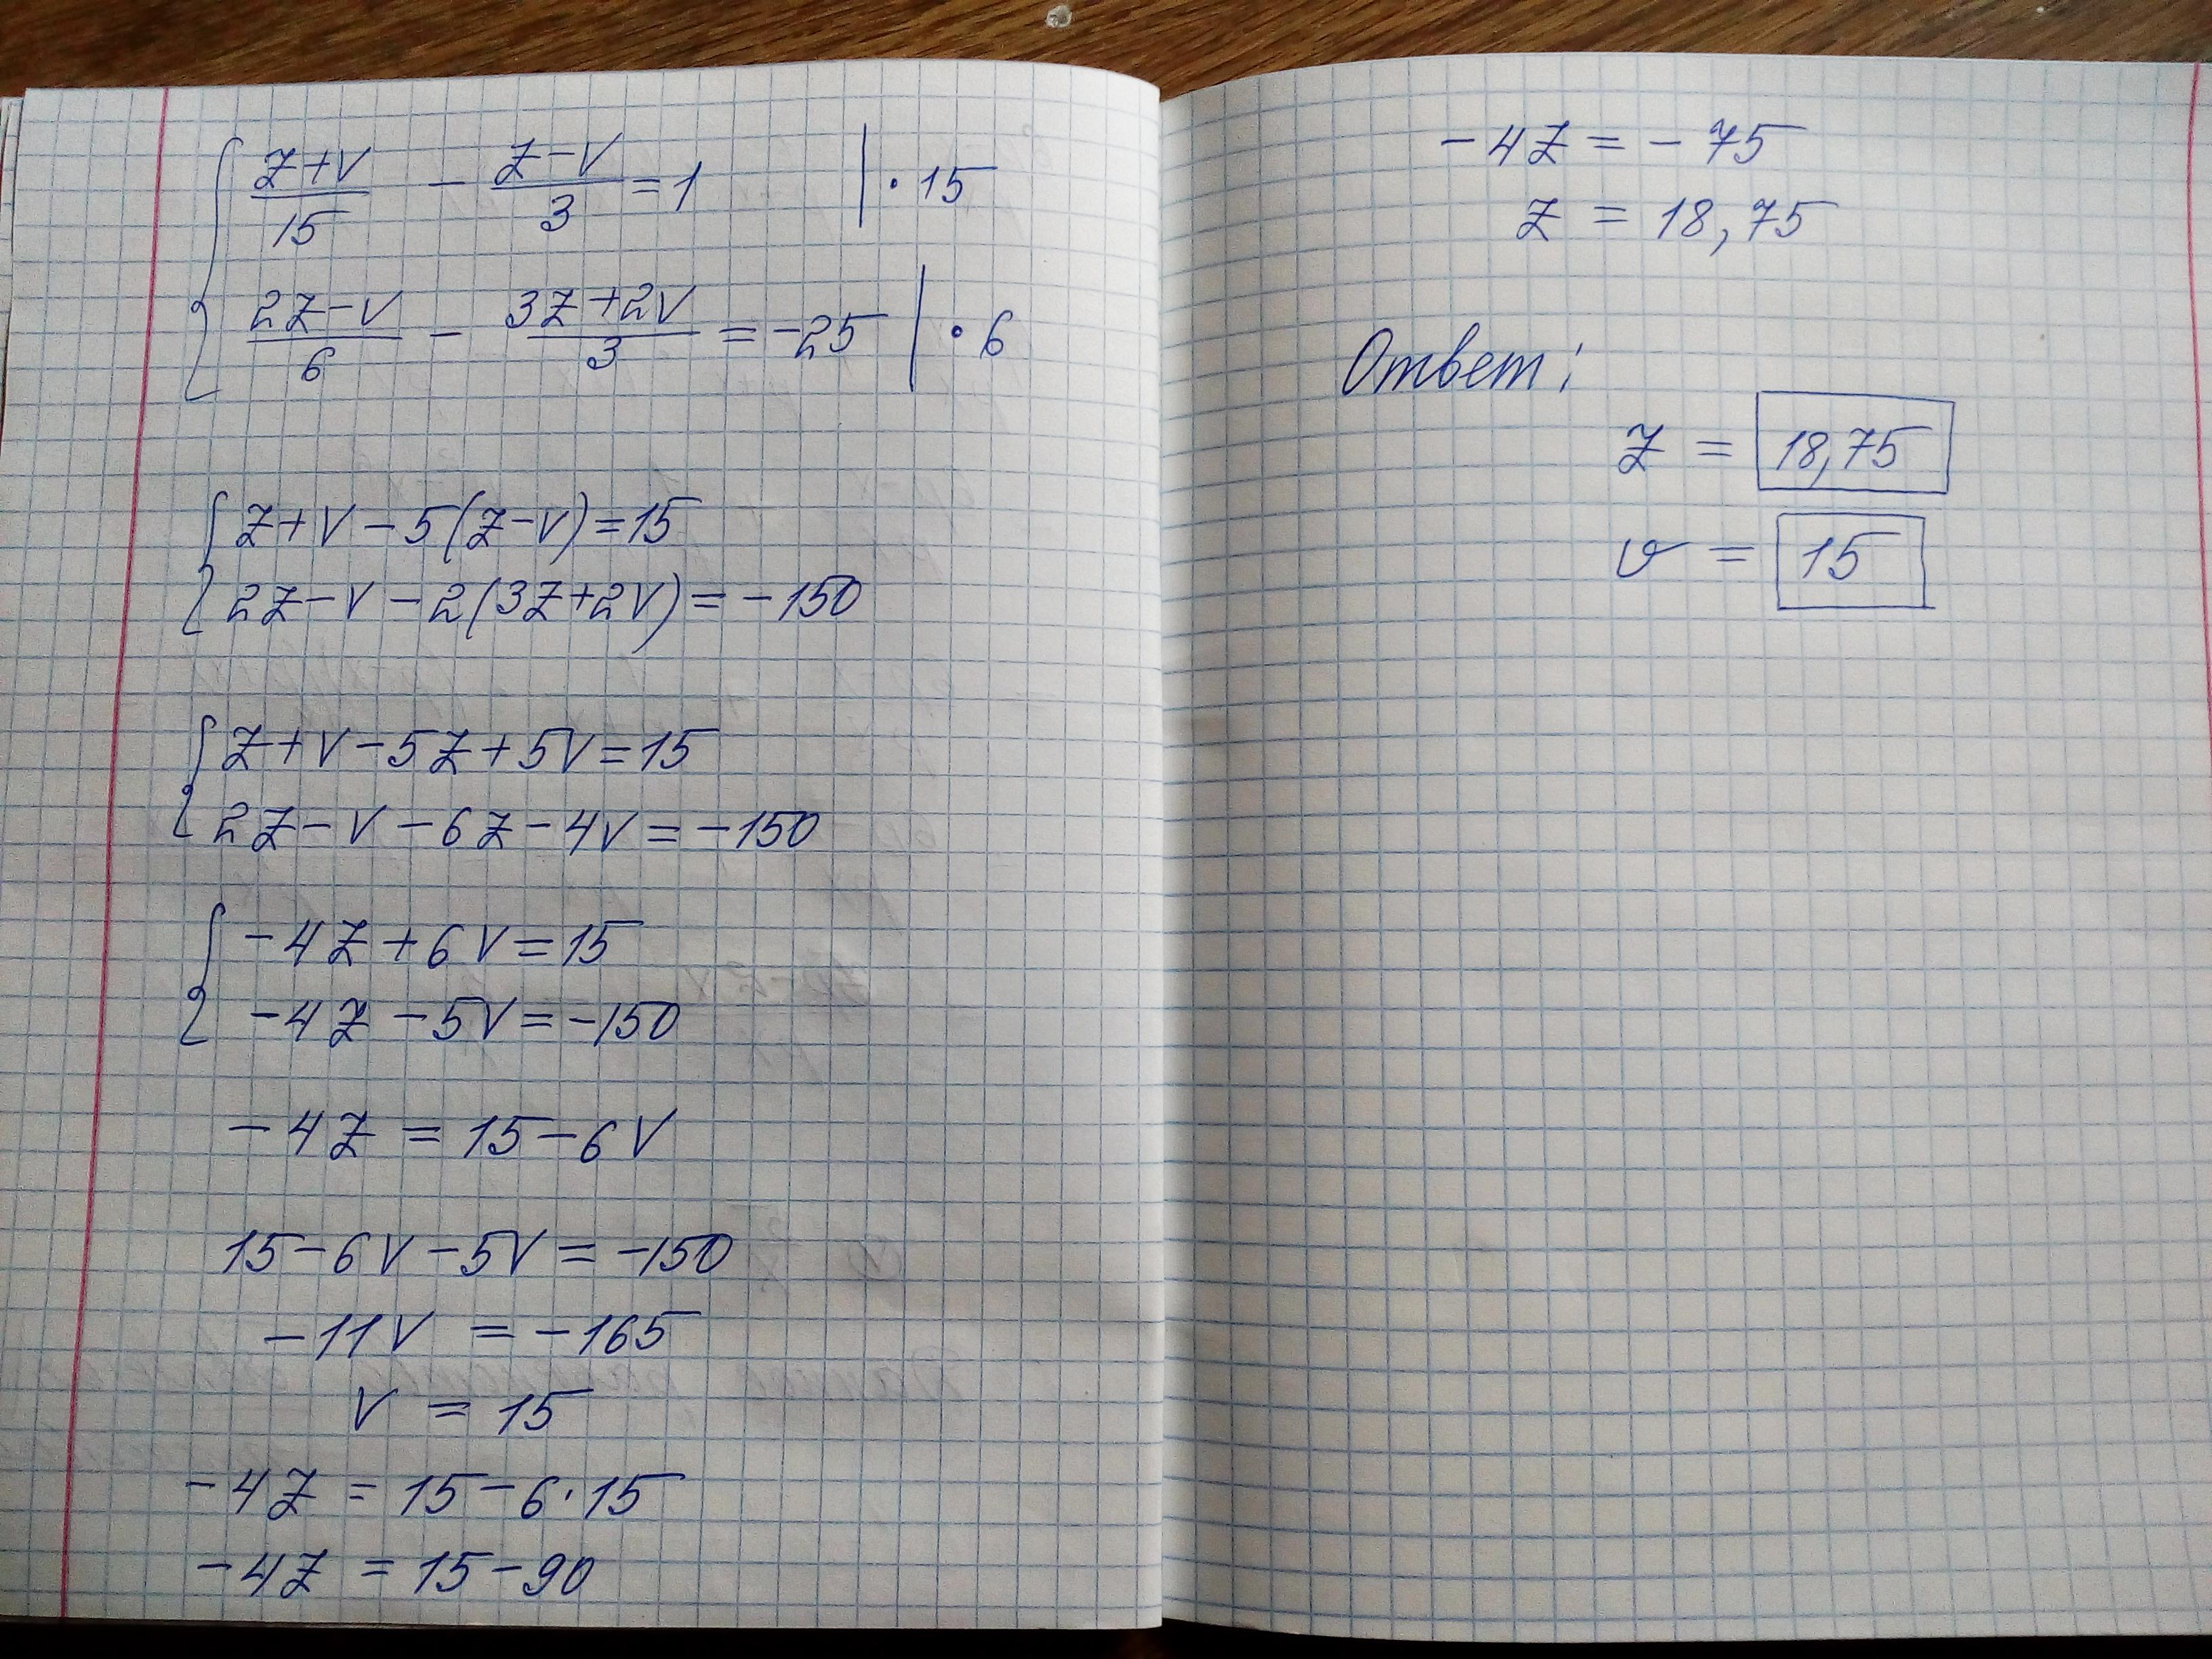 { (z+v)/15 - (z-v)/3 = 1 | · 15
{ (2z-v)/6 - (3z+2v)/3 = -25 | · 6
{ z+v-5(z-v)=15
{ 2z-v-2(3z+2v)=-150
{ z+v-5z+5v=15
{ 2z-v-6z-4v=-150
{ -4z+6v=15
{ -4z-5v=-150
-4z = 15-6v
15-6v-5v=-150
-11v = -165
v = 15
-4z = 15-6·15
-4z = 15-90
-4z = -75
z = 18,75
Ответ:
z = 18,75
v = 15